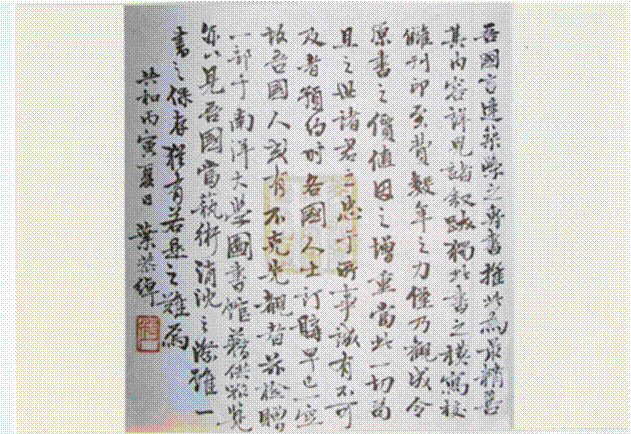 吾國言建築學之專書推此為最精善
其內容詳見諸敘跋獨此書之模寫校
讎刊印至費數年之力僅乃觀成令
原書之價值因之增重當此一切苟
且之世諸君之忠于所事誠有不可
及者預約時各國人士訂購早已一空
故吾國人或有不克先觀者茲檢贈
一部于南洋大學圖書館藉供眾覽
亦以見吾國當藝術消沈之際雖一
書之保存猶有若是之難焉
共和丙寅夏日 葉恭綽